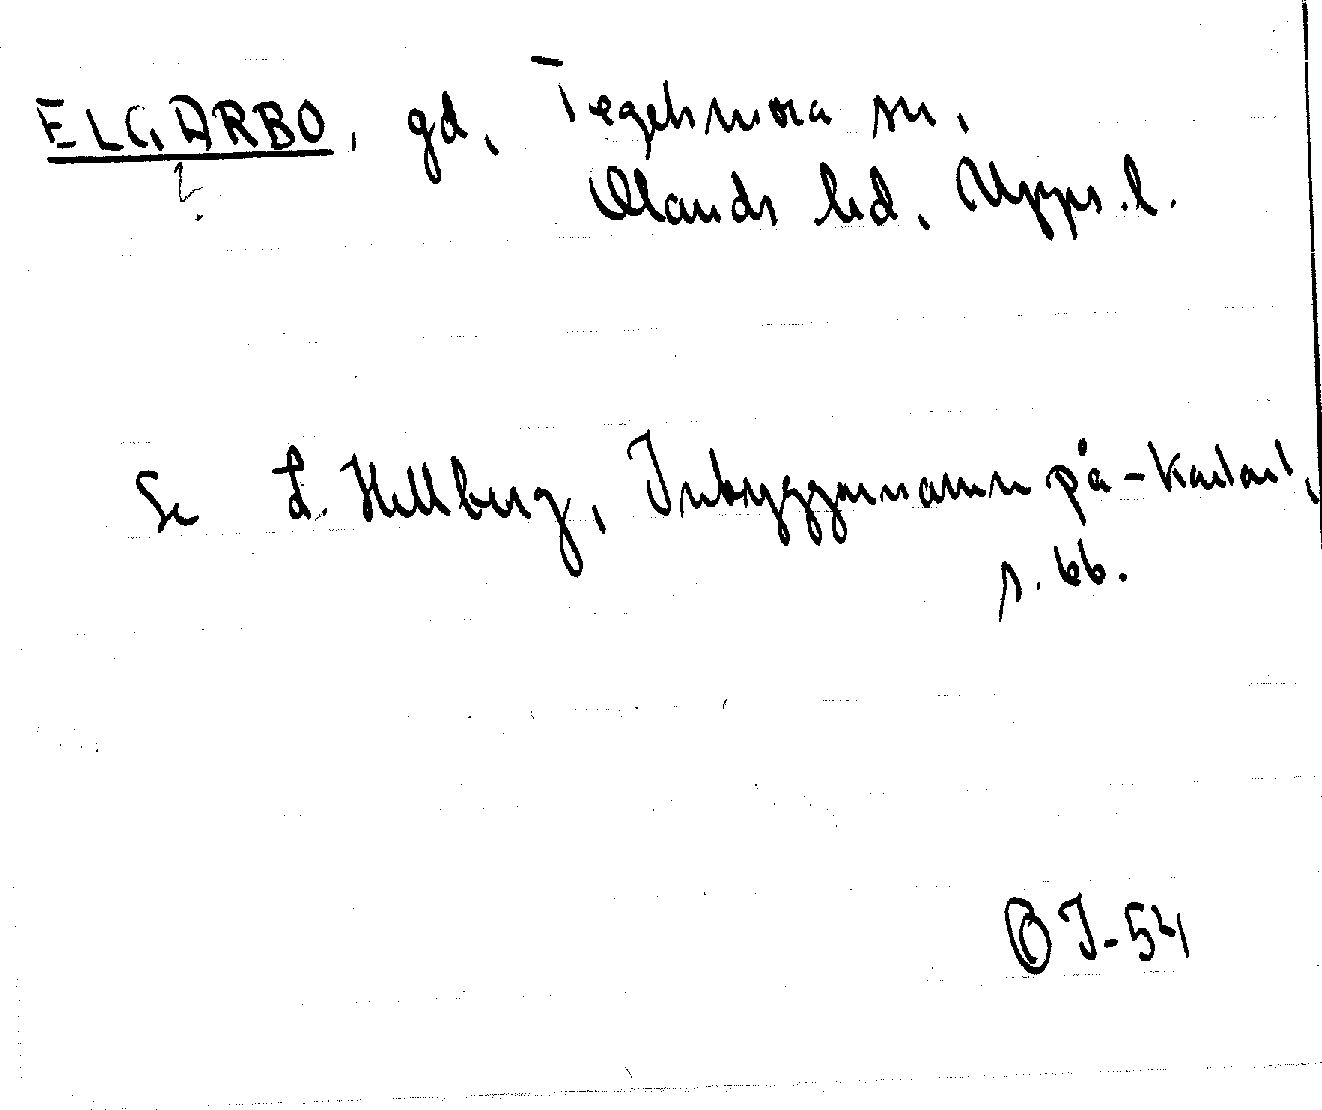 ELGARBO, gd, Tegelsmora sn,
Olands hd, Upps. l.
Se L. Hellberg, Inbyggarnamn på -karlar,
s. 66.
OJ-54